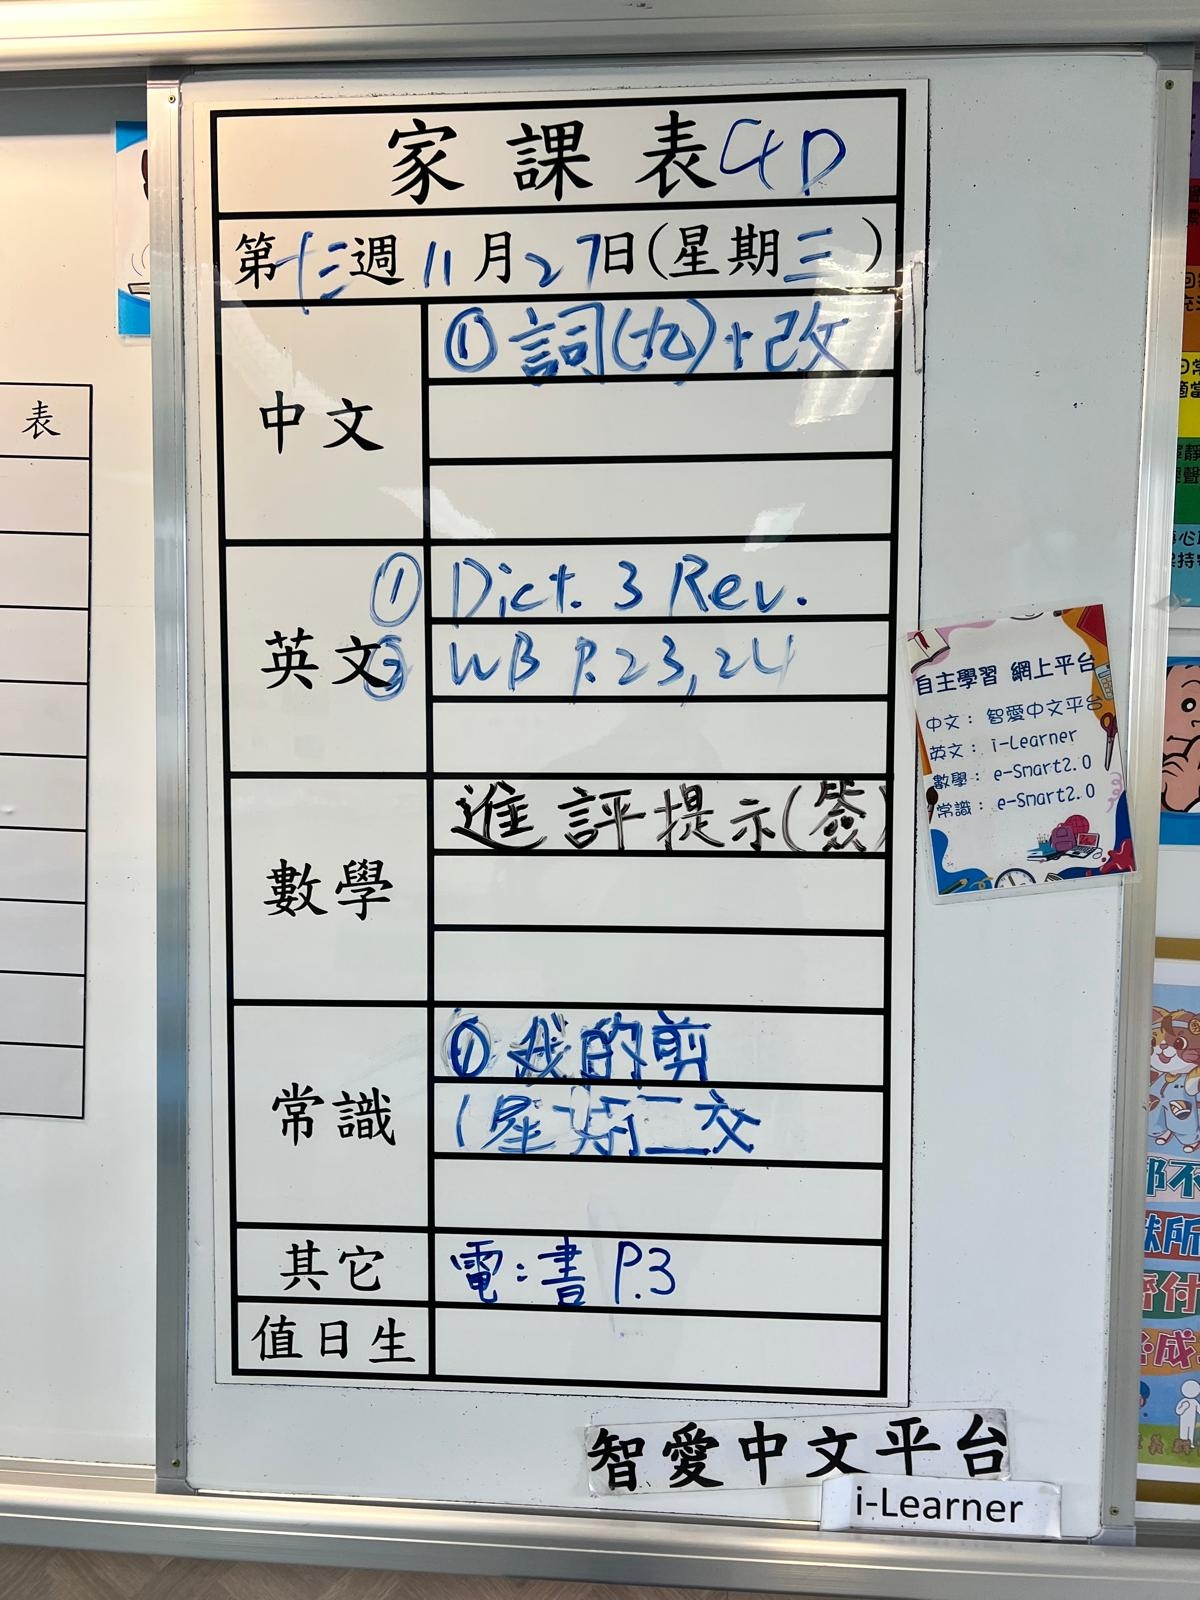 家課表4D
第十三週11月27日(星期三)
中文
①詞(九)+改
英文
① Dict. 3 Rev.
② WB P.23,24
數學
進評提示(簽)
常識
①我的剪
(星期二交
其它
電:書 P.3
值日生
智愛中文平台
i-Learner
表
自主學習 網上平台
中文: 智愛中文平台
英文: i-Learner
數學: e-Smart2.0
常識: e-Smart2.0